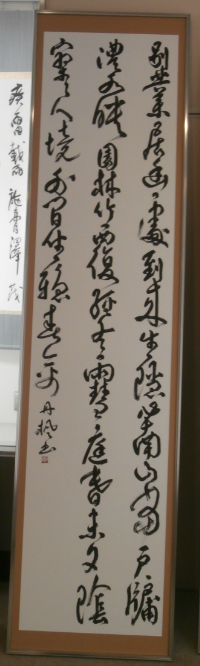 別業居幽處到来生隱心南山當戶牖
灃水映園林竹覆經冬雪庭昏未夕陰
寥々人境外閒坐聽春禽 丹楓書